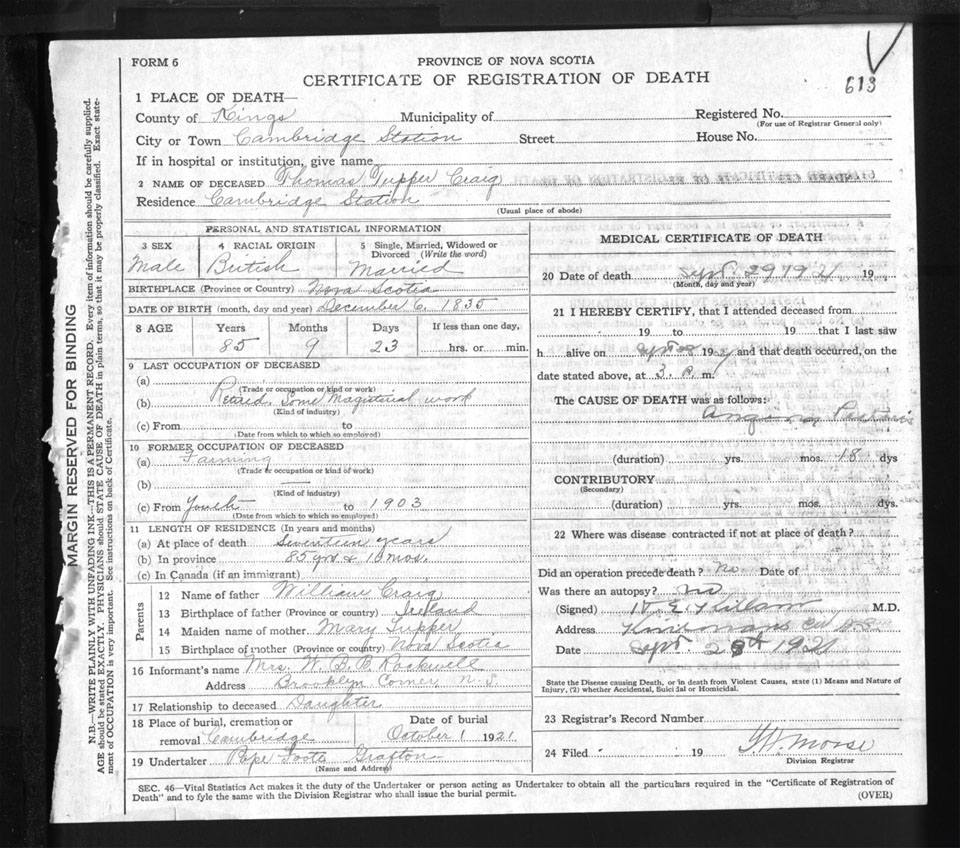 FORM 6
PROVINCE OF NOVA SCOTIA
CERTIFICATE OF REGISTRATION OF DEATH
613
1 PLACE OF DEATH—
County of Kings Municipality of Registered No.
(For use of Registrar General only)
City or Town Cambridge Station Street House No.
If in hospital or institution, give name
2 NAME OF DECEASED Thomas Tupper Craig
Residence Cambridge Station
(Usual place of abode)
PERSONAL AND STATISTICAL INFORMATION
3 SEX 4 RACIAL ORIGIN 5 Single, Married, Widowed or Divorced (Write the word)
Male British Married
BIRTHPLACE (Province or Country) Nova Scotia
DATE OF BIRTH (month, day and year) December 6, 1835
8 AGE Years Months Days If less than one day,
85 9 23 hrs. or min.
9 LAST OCCUPATION OF DECEASED
(a)
(Trade or occupation or kind or work)
(b) Retired. Some Magisterial work
(Kind of industry)
(c) From to
(Date from which to which so employed)
10 FORMER OCCUPATION OF DECEASED
(a) Farming
(Trade or occupation or kind of work)
(b) —
(Kind of industry)
(c) From Youth to 1903
(Date from which to which so employed)
11 LENGTH OF RESIDENCE (In years and months)
(a) At place of death Seventeen years
(b) In province 85 yrs & 10 mos.
(c) In Canada (if an immigrant)
Parents
12 Name of father William Craig
13 Birthplace of father (Province or country) Ireland
14 Maiden name of mother Mary Tupper
15 Birthplace of mother (Province or country) Nova Scotia
16 Informant's name Mrs. W. B. B Rockwell
Address Brooklyn Corner, N.S.
17 Relationship to deceased Daughter
18 Place of burial, cremation or removal Cambridge Date of burial October 1 1921
19 Undertaker Pope Foote Grafton
(Name and Address)
MEDICAL CERTIFICATE OF DEATH
20 Date of death Sept. 29 1921 19
(Month, day and year)
21 I HEREBY CERTIFY, that I attended deceased from
19 to 19 that I last saw
h alive on Sept 1921 and that death occurred, on the
date stated above, at 3. m.
The CAUSE OF DEATH was as follows:
Angina Pectoris
(duration) yrs. mos. 18 dys
CONTRIBUTORY
(Secondary)
(duration) yrs. mos. dys.
22 Where was disease contracted if not at place of death?
Did an operation precede death? No Date of
Was there an autopsy? No
(Signed) M.D.
Address
Date Sept. 1921
State the Disease causing Death, or in death from Violent Causes, state (1) Means and Nature of Injury, (2) whether Accidental, Suicidal or Homicidal.
23 Registrar's Record Number
24 Filed 19 Morse
Division Registrar
SEC. 46—Vital Statistics Act makes it the duty of the Undertaker or person acting as Undertaker to obtain all the particulars required in the "Certificate of Registration of Death" and to fyle the same with the Division Registrar who shall issue the burial permit.
(OVER)
MARGIN RESERVED FOR BINDING
N.B.—WRITE PLAINLY WITH UNFADING INK—THIS IS A PERMANENT RECORD. Every item of information should be carefully supplied.
AGE should be stated EXACTLY. PHYSICIANS should STATE CAUSE OF DEATH in plain terms, so that it may be properly classified. Exact statement of OCCUPATION is very important. See instructions on back of Certificate.